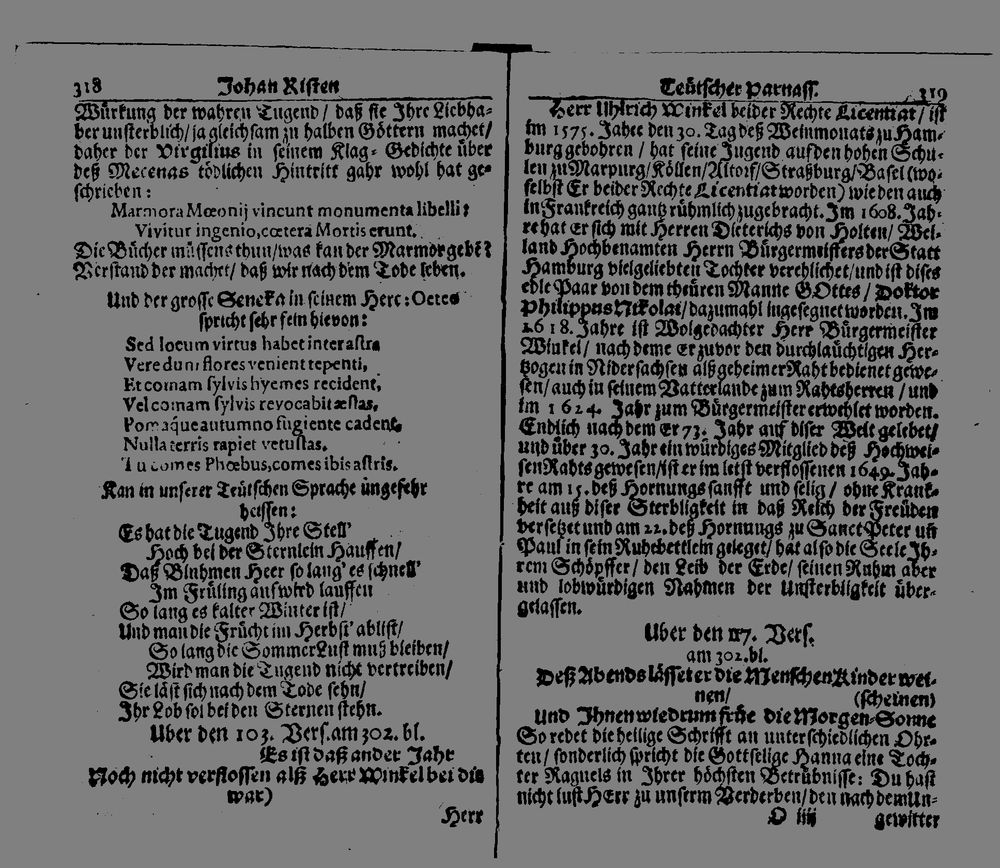 318 Johan Risten
Würkung der wahren Tugend / daß sie Ihre Liebha-
ber unsterblich / ja gleichsam zu halben Göttern machet /
daher der Virgilius in seinem Klag- Gedichte über
deß Mecenas tödlichen Hintritt gahr wohl hat ge-
schrieben:
Marmora Mœonij vincunt monumenta libelli:
Vivitur ingenio, cœtera Mortis erunt.
Die Bücher müssens thun / was kan der Marmor gebē?
Verstand der machet / daß wir nach dem Tode leben.
Und der grosse Seneka in seinem Herc: Oetes
spricht sehr fein hievon:
Sed locum virtus habet inter astra
Vere dum flores venient tepenti,
Et comam sylvis hyemes recident,
Vel comam sylvis revocabit æstas,
Pomaque autumno fugiente cadent,
Nulla terris rapiet vetustas.
Tu comes Phœbus, comes ibis astris.
Kan in unserer Teütschen Sprache ungefehr
heissen:
Es hat die Tugend Ihre Stell'
Hoch bei der Sternlein Hauffen /
Daß Bluhmen Heer so lang' es schnell'
Im Früling auf wird lauffen
So lang es kalter Winter ist /
Und man die Frücht im Herbst' ablist /
So lang die Sommer Lust muß bleiben /
Wird man die Tugend nicht vertreiben /
Sie läst sich nach dem Tode sehn /
Ihr Lob sol bei den Sternen stehn.
Uber den 103. Vers. am 302. bl.
Es ist daß ander Jahr
Noch nicht verflossen alß Herr Winkel bei dir
war)
Herr
Teütscher Parnass. 319
Herr Uhlrich Winkel beider Rechte Licentiat / ist
im 1575. Jahre den 30. Tag deß Weinmonats zu Ham-
burg gebohren / hat seine Jugend auf den hohen Schu-
len zu Marpurg / Köllen / Altorf / Straßburg / Basel (wo-
selbst Er beider Rechte Licentiat worden) wie den auch
in Frankreich gantz rühmlich zugebracht. Im 1608. Jah-
re hat er sich mit Herren Dieterichs von Holten / Wei-
land Hochbenamten Herrn Bürgermeisters der Statt
Hamburg vielgeliebten Tochter verehlichet / und ist dises
edle Paar von dem theüren Manne GOttes / Doktor
Philippus Nikolai / dazumahl ingesegnet worden. Im
1618. Jahre ist Wolgedachter Herr Bürgermeister
Winkel / nach deme er zuvor den durchlaüchtigen Her-
tzogen in Nidersachsen alß geheimer Raht bedienet gewe-
sen / auch in seinem Vatterlande zum Rahtsherren / und
im 1624. Jahr zum Bürgermeister erwehlet worden.
Endlich nach dem er 73. Jahr auf diser Welt gelebet /
und über 30. Jahr ein würdiges Mitglied deß Hochwei-
sen Rahts gewesen / ist er im letst verflossenen 1649. Jah-
re am 15. deß Hornungs sanfft und selig / ohne Krank-
heit auß diser Sterbligkeit in daß Reich der Freüden
versetzet und am 22. deß Hornungs zu Sanct Peter uñ
Paul in sein Ruhebettlein geleget / hat also die Seele Ih-
rem Schöpffer / den Leib der Erde / seinen Ruhm aber
und lobwürdigen Nahmen der Unsterbligkeit über-
gelassen.
Uber den 117. Vers.
am 302. bl.
Deß Abends lässet er die Menschen Kinder wei-
nen / (scheinen)
Und Ihnen wiedrum früe die Morgen-Sonne
So redet die heilige Schrifft an unterschiedlichen Ohr-
ten / sonderlich spricht die Gottselige Hanna eine Toch-
ter Raguels in Ihrer höchsten Betrübnisse: Du hast
nicht lust HErr zu unserm Verderben / den nach dem Un-
O iiij gewitter